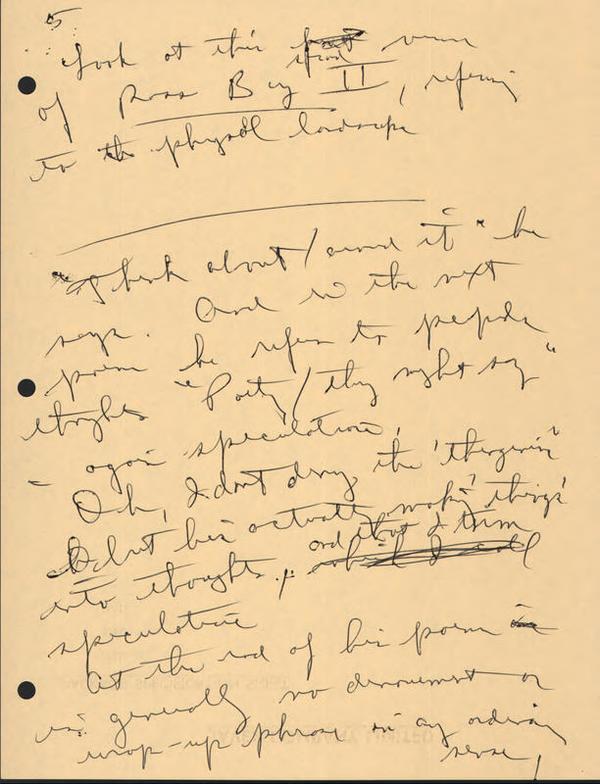 5
Look at this final verse
of Ross Bay II, referring
to the physcl landscape
"I think about / around it" he
says. And in the next
poem he refers to people's
thoughts "Poetry / they might say"
- again speculation.
Oh, I don't deny the 'thingness'
but he's actually making 'things'
into thoughts, and that I term
speculative
At the end of his poem
is generally no denouement or
wrap-up phrase in any ordinary
sense,